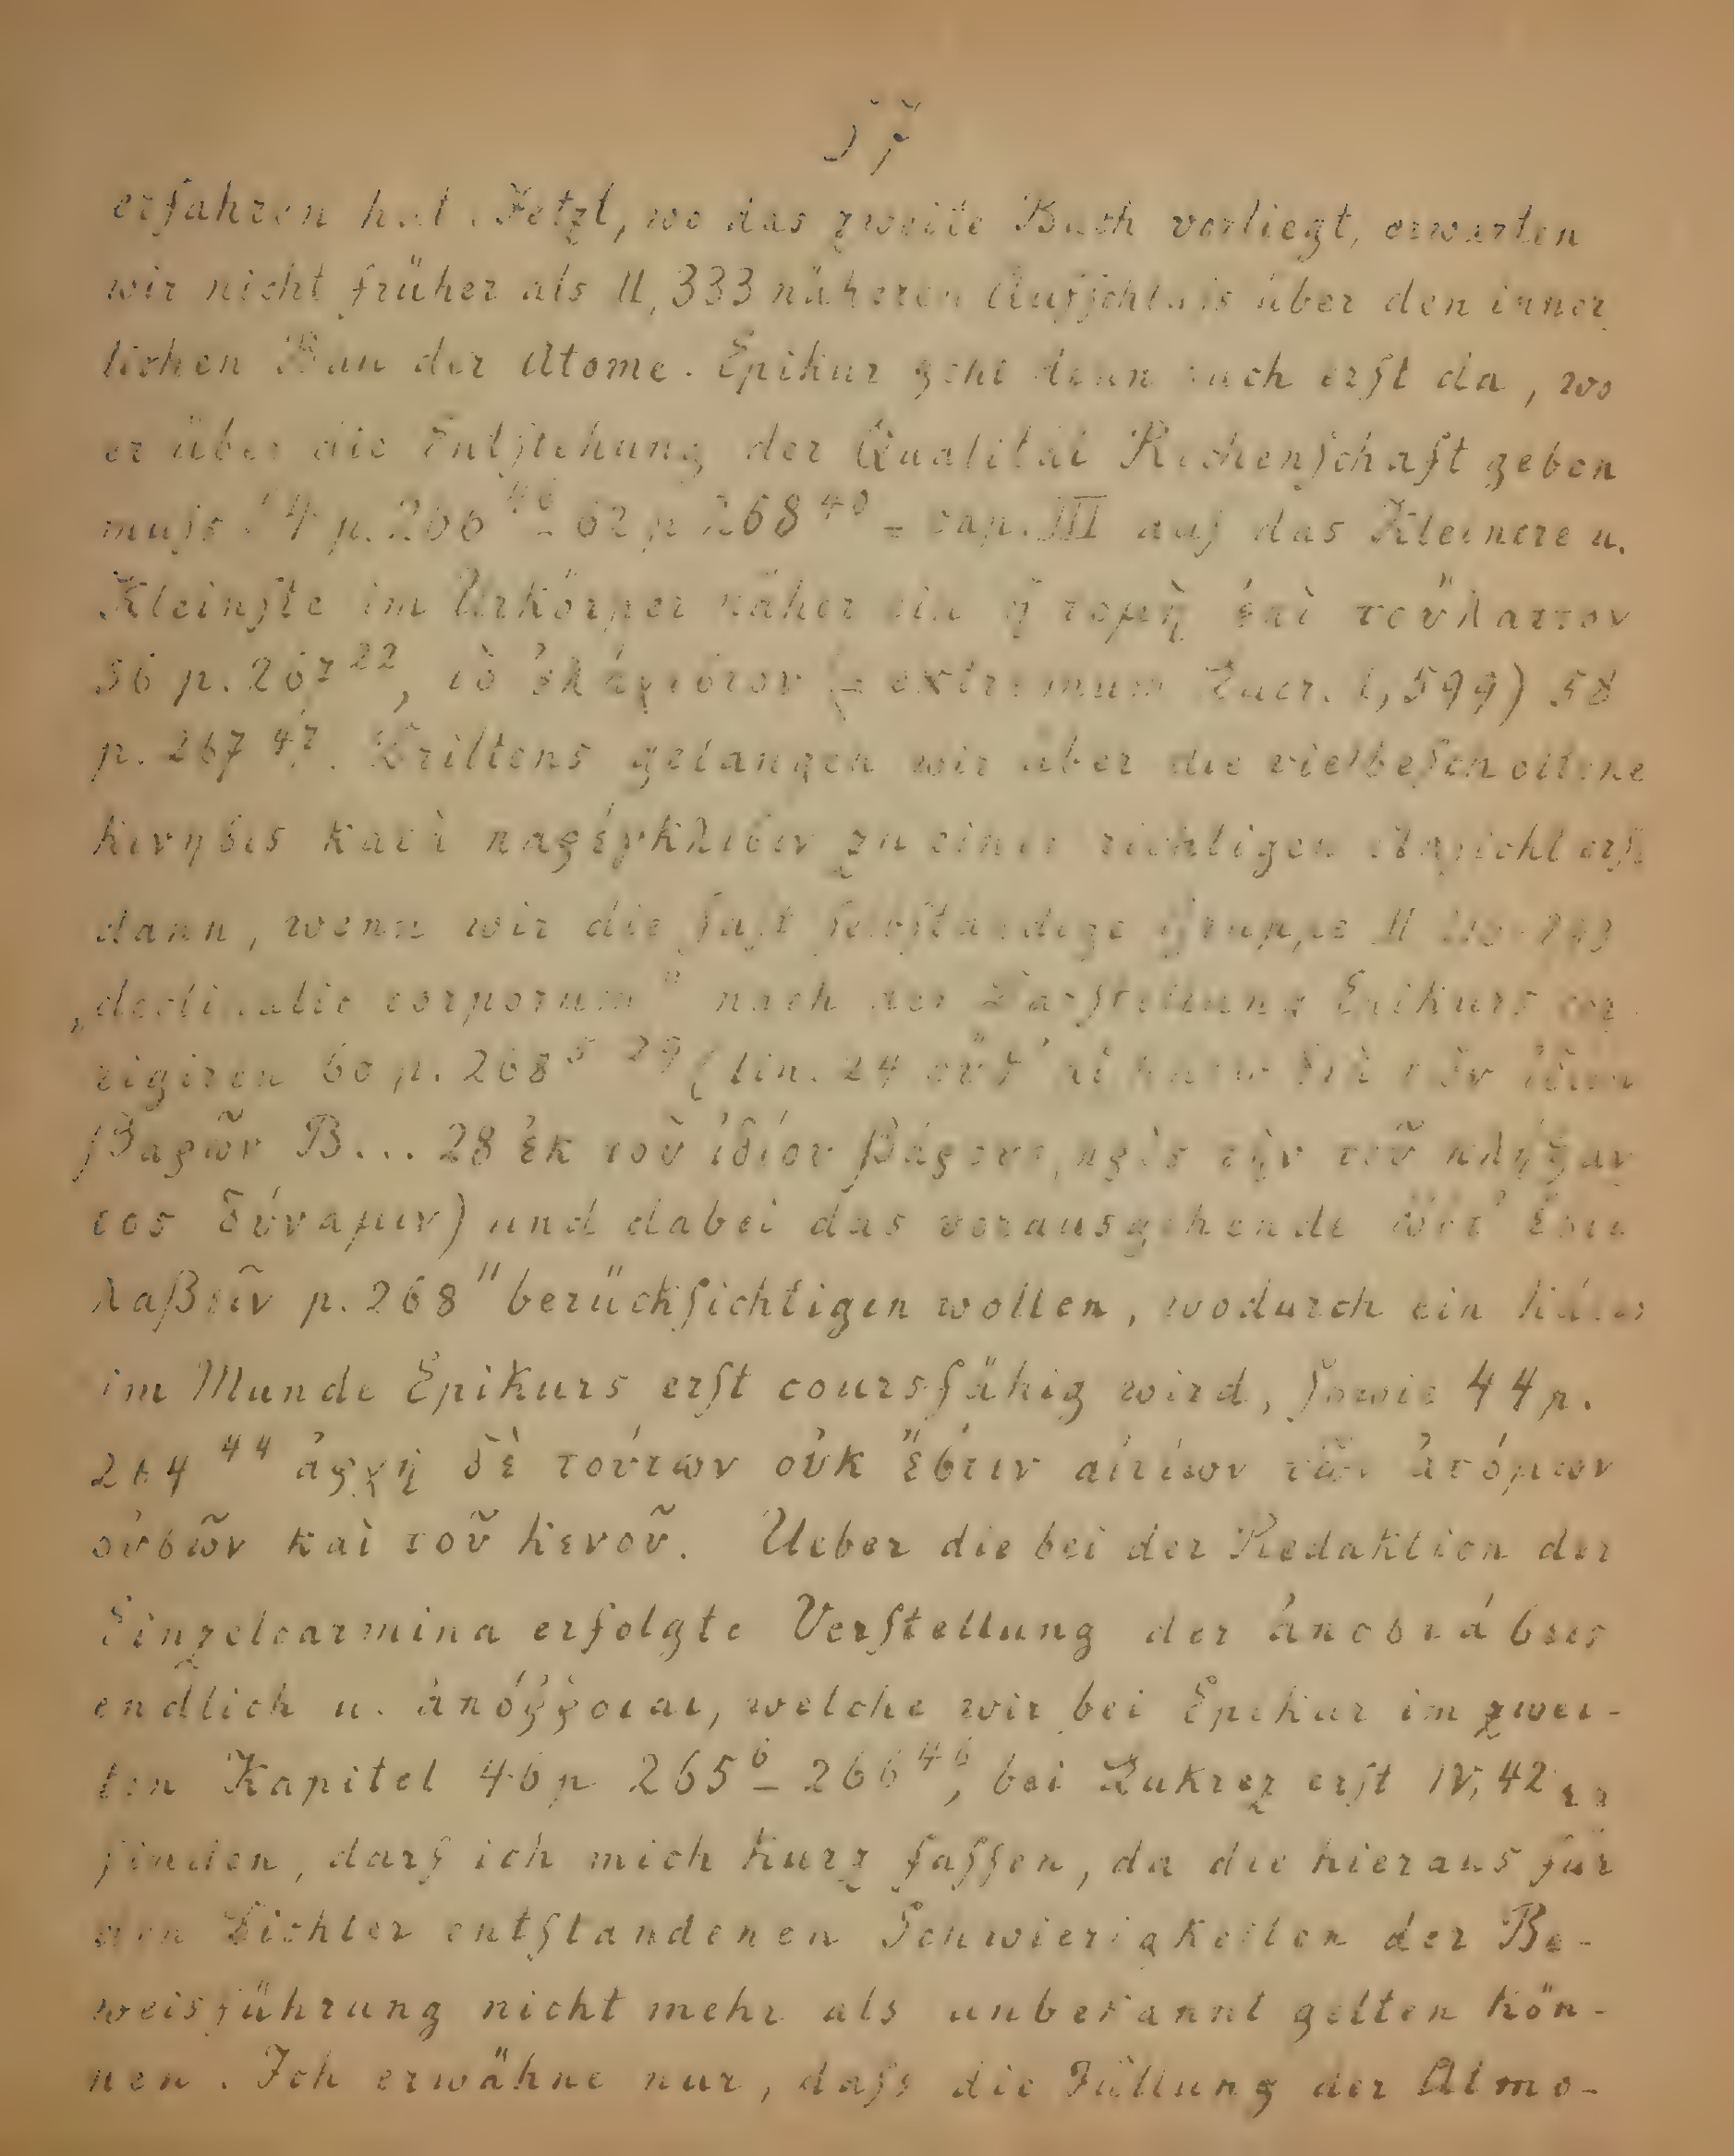 57
erfahren hat. Jetzt, wo das zweite Buch vorliegt, erwarten
wir nicht früher als II, 333 näheren Aufschluss über den inner
lichen Bau der Atome. Epikur geht denn auch erst da, wo
er über die Entstehung der Qualität Rechenschaft geben
muss 54 p. 266 46 – 62 p 268 40 = cap. III auf das Kleinere u.
Kleinste im Urkörper näher ein ἡ τομὴ ἐπὶ τοὔλαττον
56 p. 267 22, τὸ ἐλάχιστον (= extremum Lucr. I, 599) 58
p. 267 47. Drittens gelangen wir über die vielbescholtene
κινησις κατὰ παρέγκλισιν zu einer richtigen Ansicht erst
dann, wenn wir die fast selbständige Gruppe II
„declinatio corporum“ nach der Darstellung Epikurs cor
rigiren 60 p. 268 5 29 (lin. 24 οὔθ' διὰ τῶν ἰδίων
βαρῶν B... 28 ἐκ τοῦ ἰδίου βάρους, πρὸς τὴν τοῦ πλήξαν
τος δύναμιν) und dabei das vorausgehende ὥστ' ἔσται
λαβεῖν p. 268 11 berücksichtigen wollen, wodurch ein κάτω
im Munde Epikurs erst coursfähig wird, sowie 44 p.
264 44 ἀρχὴ δὲ τούτων οὐκ ἔστιν αἰτίων τῶν ἀτόμων
οὐσῶν καὶ τοῦ κενοῦ. Ueber die bei der Redaktion der
Einzelcarmina erfolgte Verstellung der ἀποστάσεις
endlich u. ἀπόῤῥοιαι, welche wir bei Epikur im zwei-
ten Kapitel 46 p 265 6 – 266 46, bei Lukrez erst IV, 42
finden, darf ich mich kurz fassen, da die hieraus für
den Dichter entstandenen Schwierigkeiten der Be-
weisführung nicht mehr als unbekannt gelten kön-
nen. Ich erwähne nur, dass die Füllung der Atmo-